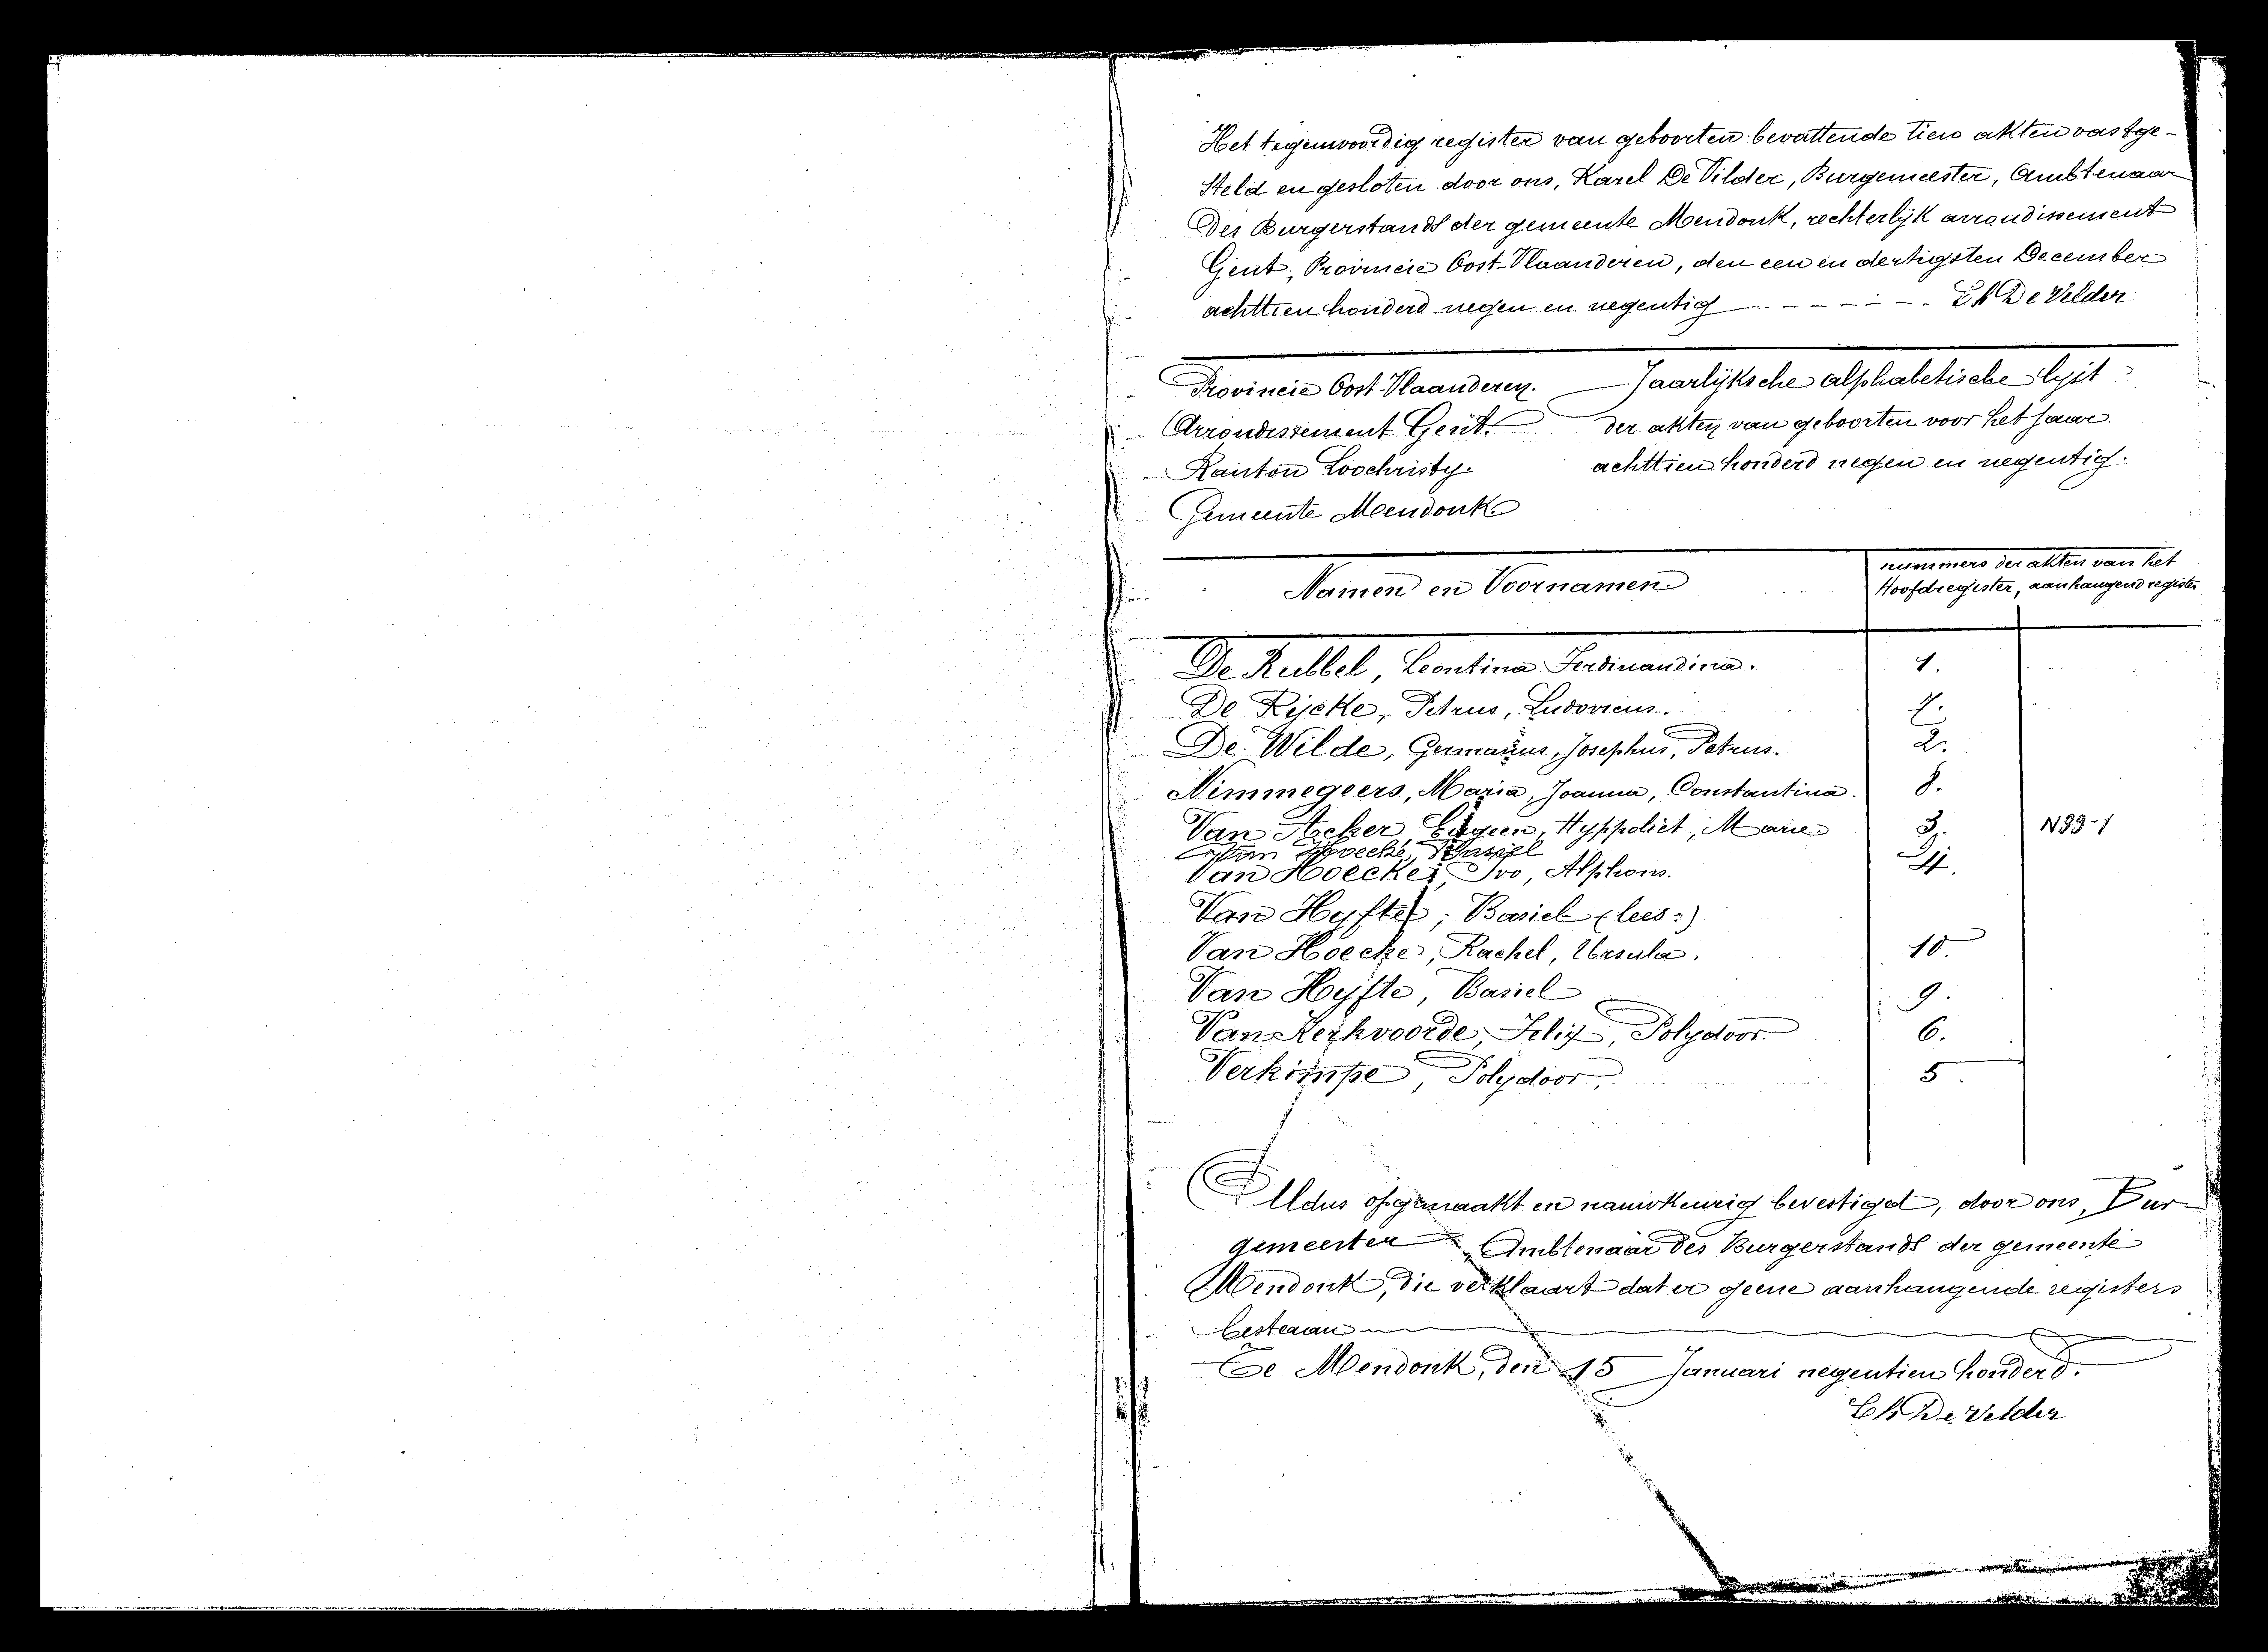 Het tegenwoordig register van geboorten bevattende tien akten vastge-
steld en gesloten door ons, Karel De Vilder, Burgemeester, Ambtenaar
des Burgerstands der gemeente Mendonk, rechterlijk arrondissement
Gent, Provincie Oost-Vlaanderen, den een en dertigsten December
achttien honderd negen en negentig - - - - - - Ch De Vilder
Provincie Oost-Vlaanderen. Jaarlijksche alphabetische lijst
Arrondissement Gent. der akten van geboorten voor het jaar
Kanton Loochristy. achttien honderd negen en negentig.
Gemeente Mendonk
Namen en Voornamen nummers der akten van het
Hoofdregister, aanhangend register
De Rubbel, Leontina Ferdinandina. 1.
De Rijcke, Petrus, Ludovicus. 7.
De Wilde, Germanus, Josephus, Petrus. 2.
Nimmegeers, Maria, Joanna, Constantina. 8.
Van Acker, Eugeen, Hyppoliet, Marie 3. N99-1
Van Hoecke, Basiel
Van Hoecke, Ivo, Alphons. 4.
Van Hyfte, Basiel (lees:)
Van Hoecke, Rachel, Ursula. 10
Van Hyfte, Basiel 9.
Van Kerkvoorde, Felix, Polydoor. 6.
Verkimpe, Polydoor. 5.
Aldus opgemaakt en nauwkeurig bevestigd, door ons, Bur-
gemeester Ambtenaar des Burgerstands der gemeente
Mendonk, die verklaart dat er geene aanhangende registers
bestaan
Te Mendonk, den 15 Januari negentien honderd.
Ch De Vilder